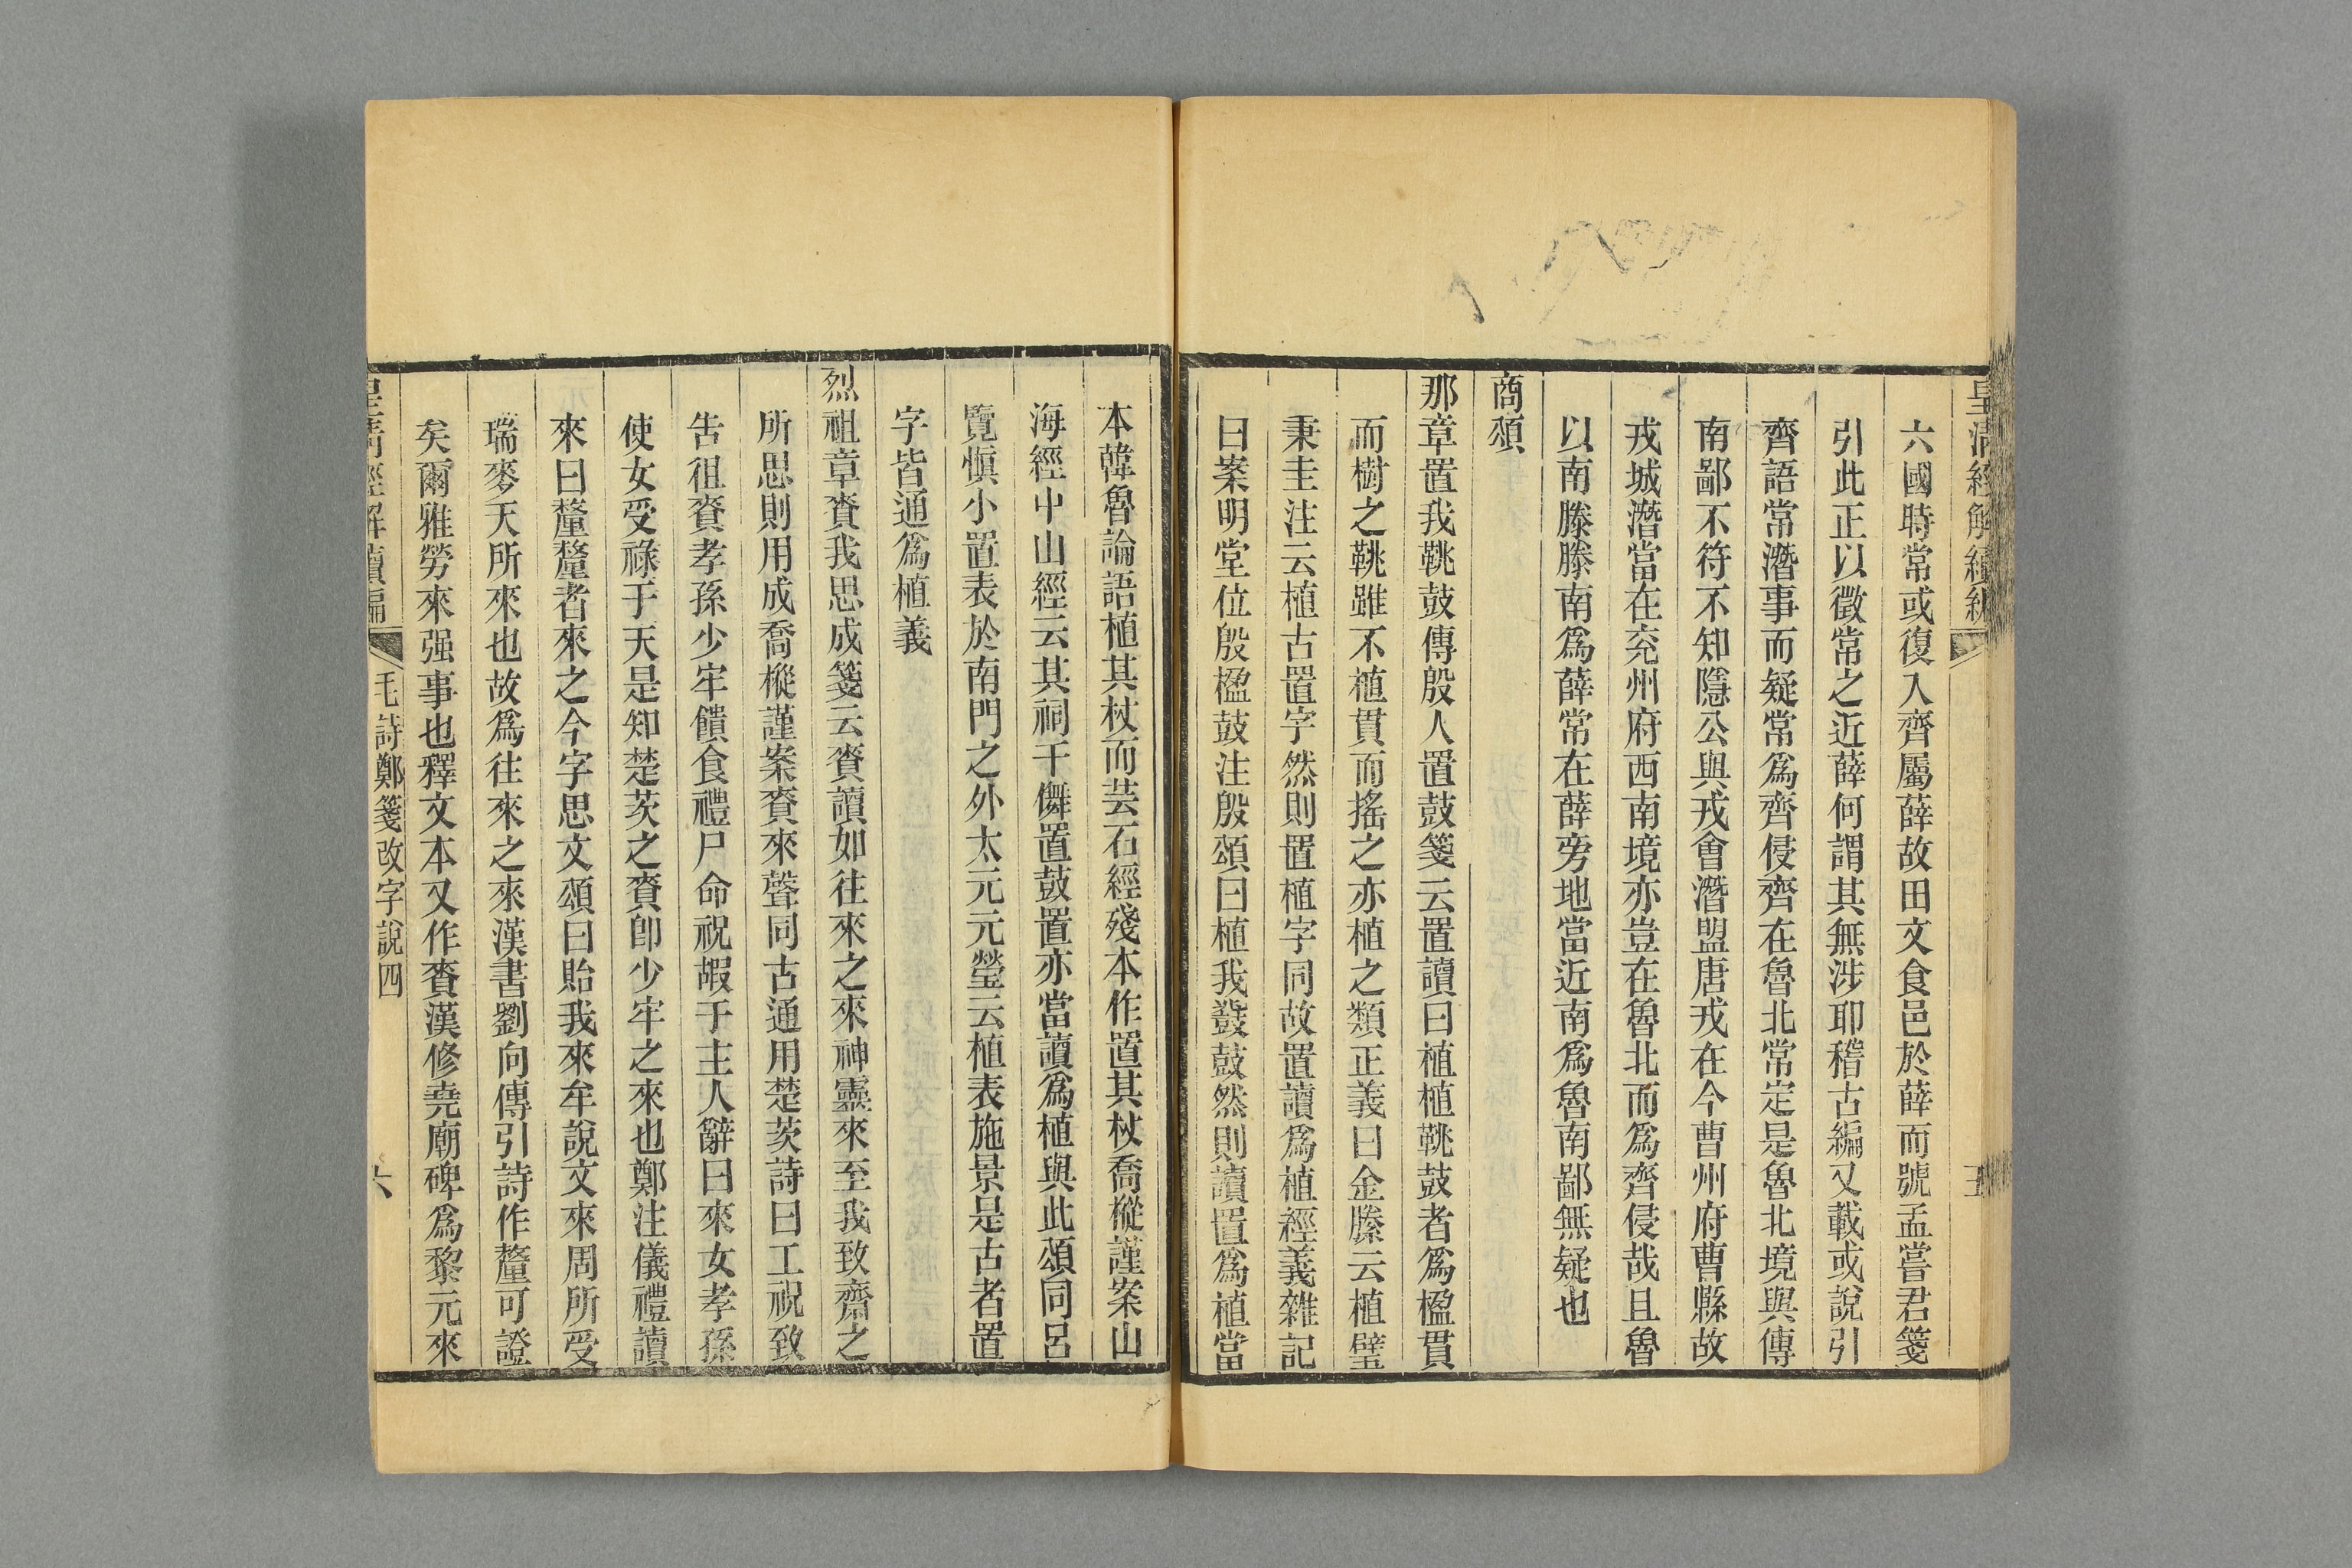 皇清經解續編
五
六國時常或復入齊屬薛故田文食邑於薛而號孟嘗君箋
引此正以徵常之近薛何謂其無涉耶稽古編又載或說引
齊語常潛事而疑常爲齊侵齊在魯北常定是魯北境與傳
南鄙不符不知隱公與戎會潛盟唐戎在今曹州府曹縣故
戎城潛當在兖州府西南境亦豈在魯北而爲齊侵哉且魯
以南滕滕南爲薛常在薛旁地當近南爲魯南鄙無疑也
商頌
那章置我鞉鼓傳殷人置鼓箋云置讀曰植植鞉鼓者爲楹貫
而樹之鞉雖不植貫而搖之亦植之類正義曰金縢云植璧
秉圭注云植古置字然則置植字同故置讀爲植經義雜記
曰案明堂位殷楹鼓注殷頌曰植我鼗鼓然則讀置爲植當
本韓魯論語植其杖而芸石經殘本作置其杖喬樅謹案山
海經中山經云其祠干儛置鼓置亦當讀爲植與此頌同呂
覽愼小置表於南門之外太元元瑩云植表施景是古者置
字皆通爲植義
烈祖章賚我思成箋云賚讀如往來之來神靈來至我致齋之
所思則用成喬樅謹案賚來聲同古通用楚茨詩曰工祝致
告徂賚孝孫少牢饋食禮尸命祝嘏于主人辭曰來女孝孫
使女受祿于天是知楚茨之賚卽少牢之來也鄭注儀禮讀
來曰釐釐者來之今字思文頌曰貽我來牟說文來周所受
瑞麥天所來也故爲往來之來漢書劉向傳引詩作釐可證
矣爾雅勞來强事也釋文本又作賚漢修堯廟碑爲黎元來
皇清經解續編
毛詩鄭箋改字說四
六